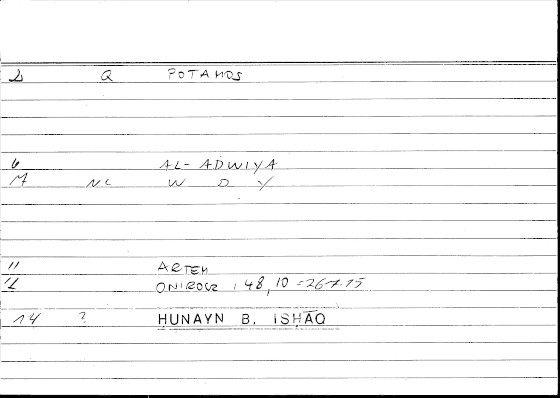 2 Q POTAMOS
6 AL-ADWIYA
M NL W D Y
11 ARTEM
12 ONIROCR 148,10 = 267.15
14 ? ḤUNAYN B. ISḤĀQ